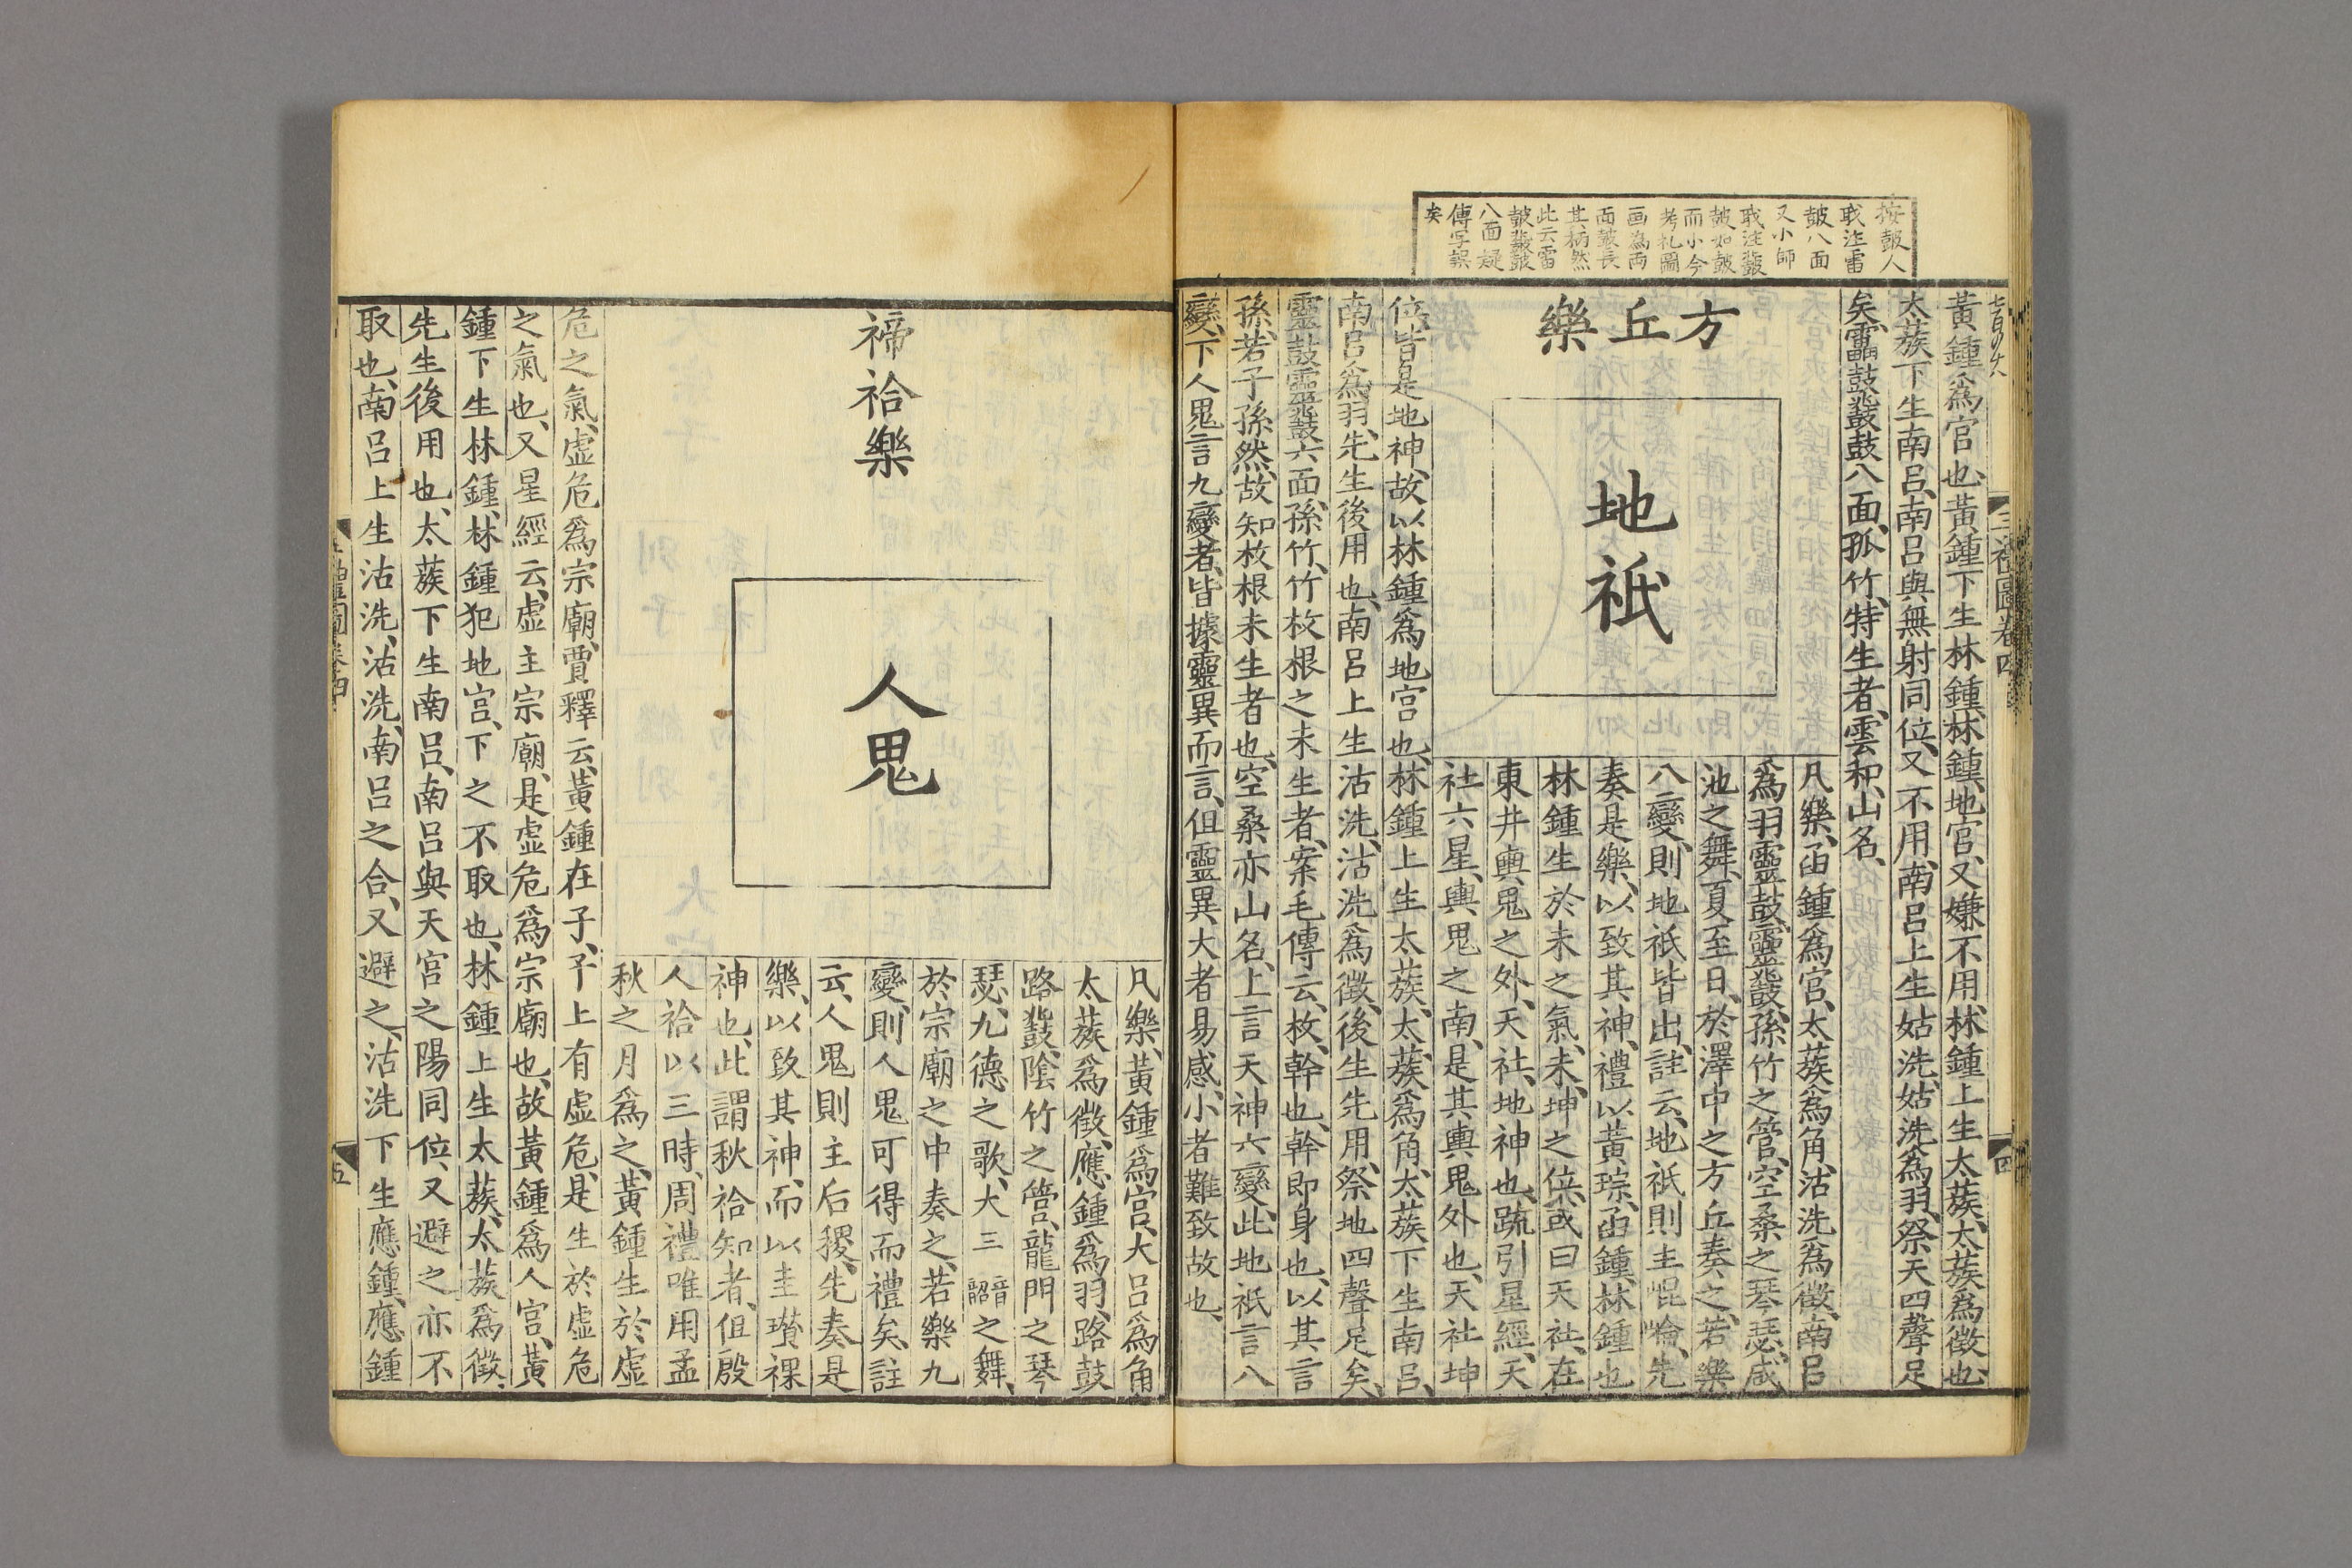 按皷人
戢注雷
皷八面
又小師
戢注鼗
皷如皷
而小今
考礼圖
画為両
面皷長
其柄然
此云雷
皷鼗皷
八面疑
傳写誤
矣
三禮圖卷四
四
黃鍾爲宮也、黃鍾下生林鍾、林鍾、地宮、又嫌不用、林鍾上生太蔟、太蔟爲徵也、
太蔟下生南呂、南呂與無射同位、又不用、南呂上生姑洗、姑洗爲羽、祭天四聲足
矣、靁鼓鼗鼓八面、孤竹、特生者、雲和、山名、
方丘樂
地祇
凡樂、函鍾爲宮、太蔟爲角、沽洗爲徵、南呂
爲羽、靈鼓靈鼗、孫竹之管、空桑之琴瑟、咸
池之舞、夏至日、於澤中之方丘奏之、若樂
八變、則地祇皆出、註云、地祇則主崐崘、先
奏是樂、以致其神、禮以黃琮、函鍾、林鍾也
林鍾生於未之氣、未、坤之位、或曰天社、在
東井輿鬼之外、天社、地神也、疏引星經、天
社六星、輿鬼之南、是其輿鬼外也、天社坤
位、皆是地神、故以林鍾爲地宮也、林鍾上生太蔟、太蔟爲角、太蔟下生南呂、
南呂爲羽、先生後用也、南呂上生沽洗、沽洗爲徵、後生先用、祭地四聲足矣、
靈鼓靈鼗六面、孫竹、竹枚根之未生者、案毛傳云、枚、幹也、幹即身也、以其言
孫、若子孫然、故知枚根未生者也、空桑亦山名、上言天神六變、此地祇言八
變、下人鬼言九變者、皆據靈異而言、但靈異大者易感、小者難致故也、
禘祫樂
人鬼
凡樂、黃鍾爲宮、大呂爲角
太蔟爲徵、應鍾爲羽、路鼓
路鼗、陰竹之管、龍門之琴
瑟、九德之歌、大三音韶之舞、
於宗廟之中奏之、若樂九
變、則人鬼可得而禮矣、註
云、人鬼則主后稷、先奏是
樂、以致其神、而以圭瓚祼
神也、此謂秋祫知者、但殷
人祫以三時、周禮唯用孟
秋之月爲之、黃鍾生於虛
危之氣、虛危爲宗廟、賈釋云、黃鍾在子、子上有虛危、是生於虛危
之氣也、又星經云、虛主宗廟、是虛危爲宗廟也、故黃鍾爲人宮、黃
鍾下生林鍾、林鍾犯地宮、下之不取也、林鍾上生太蔟、太蔟爲徵、
先生後用也、太蔟下生南呂、南呂與天宮之陽同位、又避之、亦不
取也、南呂上生沽洗、沽洗、南呂之合、又避之、沽洗下生應鍾、應鍾
三禮圖卷四
五